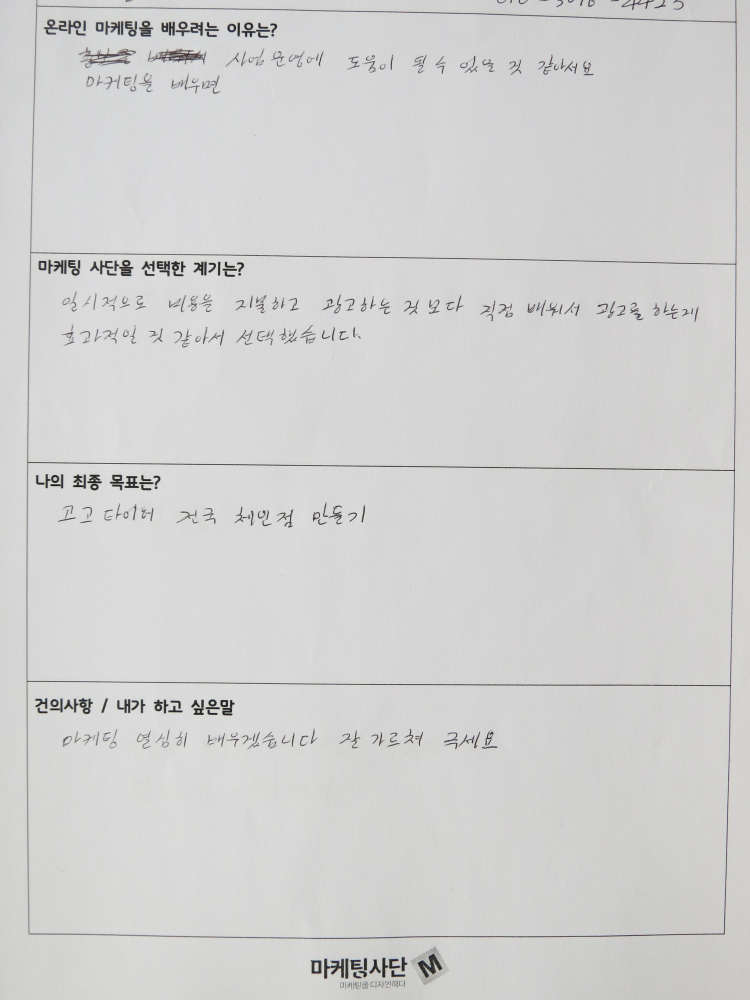 온라인 마케팅을 배우려는 이유는?
사업 운영에 도움이 될 수 있을 것 같아서요
마케팅을 배우면
마케팅 사단을 선택한 계기는?
일시적으로 비용을 지불하고 광고하는 것 보다 직접 배워서 광고를 하는게
효과적일 것 같아서 선택했습니다.
나의 최종 목표는?
고고 타이어 전국 체인점 만들기
건의사항 / 내가 하고 싶은말
마케팅 열심히 배우겠습니다 잘 가르쳐 주세요
마케팅사단 M
마케팅을 디자인하다